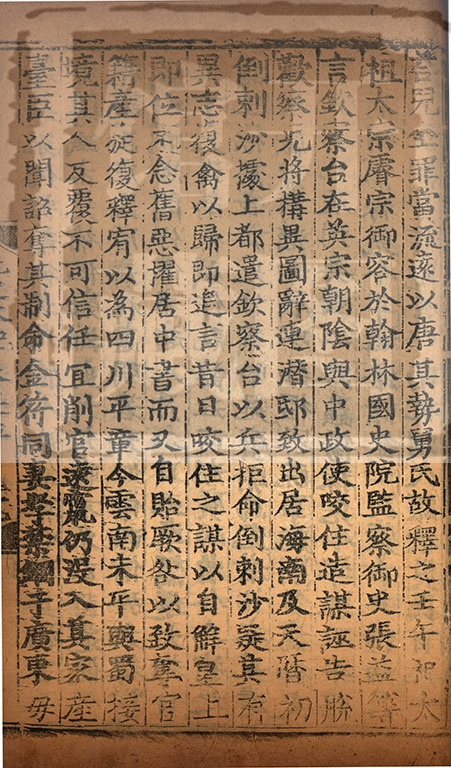 答兒坐罪當流遠以唐其勢舅氏故釋之壬午祀太
祖太宗睿宗御容於翰林國史院監察御史張益等
言欽察台在英宗朝陰與中政使咬住造謀誣告脫
歡察兒將構異圖辭連潛邸致出居海南及天曆初
倒剌沙據上都遣欽察台以兵拒命倒剌沙疑其有
異志復禽以歸即追言昔日咬住之謀以自解皇上
即位不念舊惡擢居中書而又自貽厥咎以致奪官
籍產旋復釋宥以為四川平章今雲南未平與蜀接
境其人反覆不可信任宜削官遠竄仍没入其家產
臺臣以聞詔奪其制命金符同妻孥禁錮于廣東毋